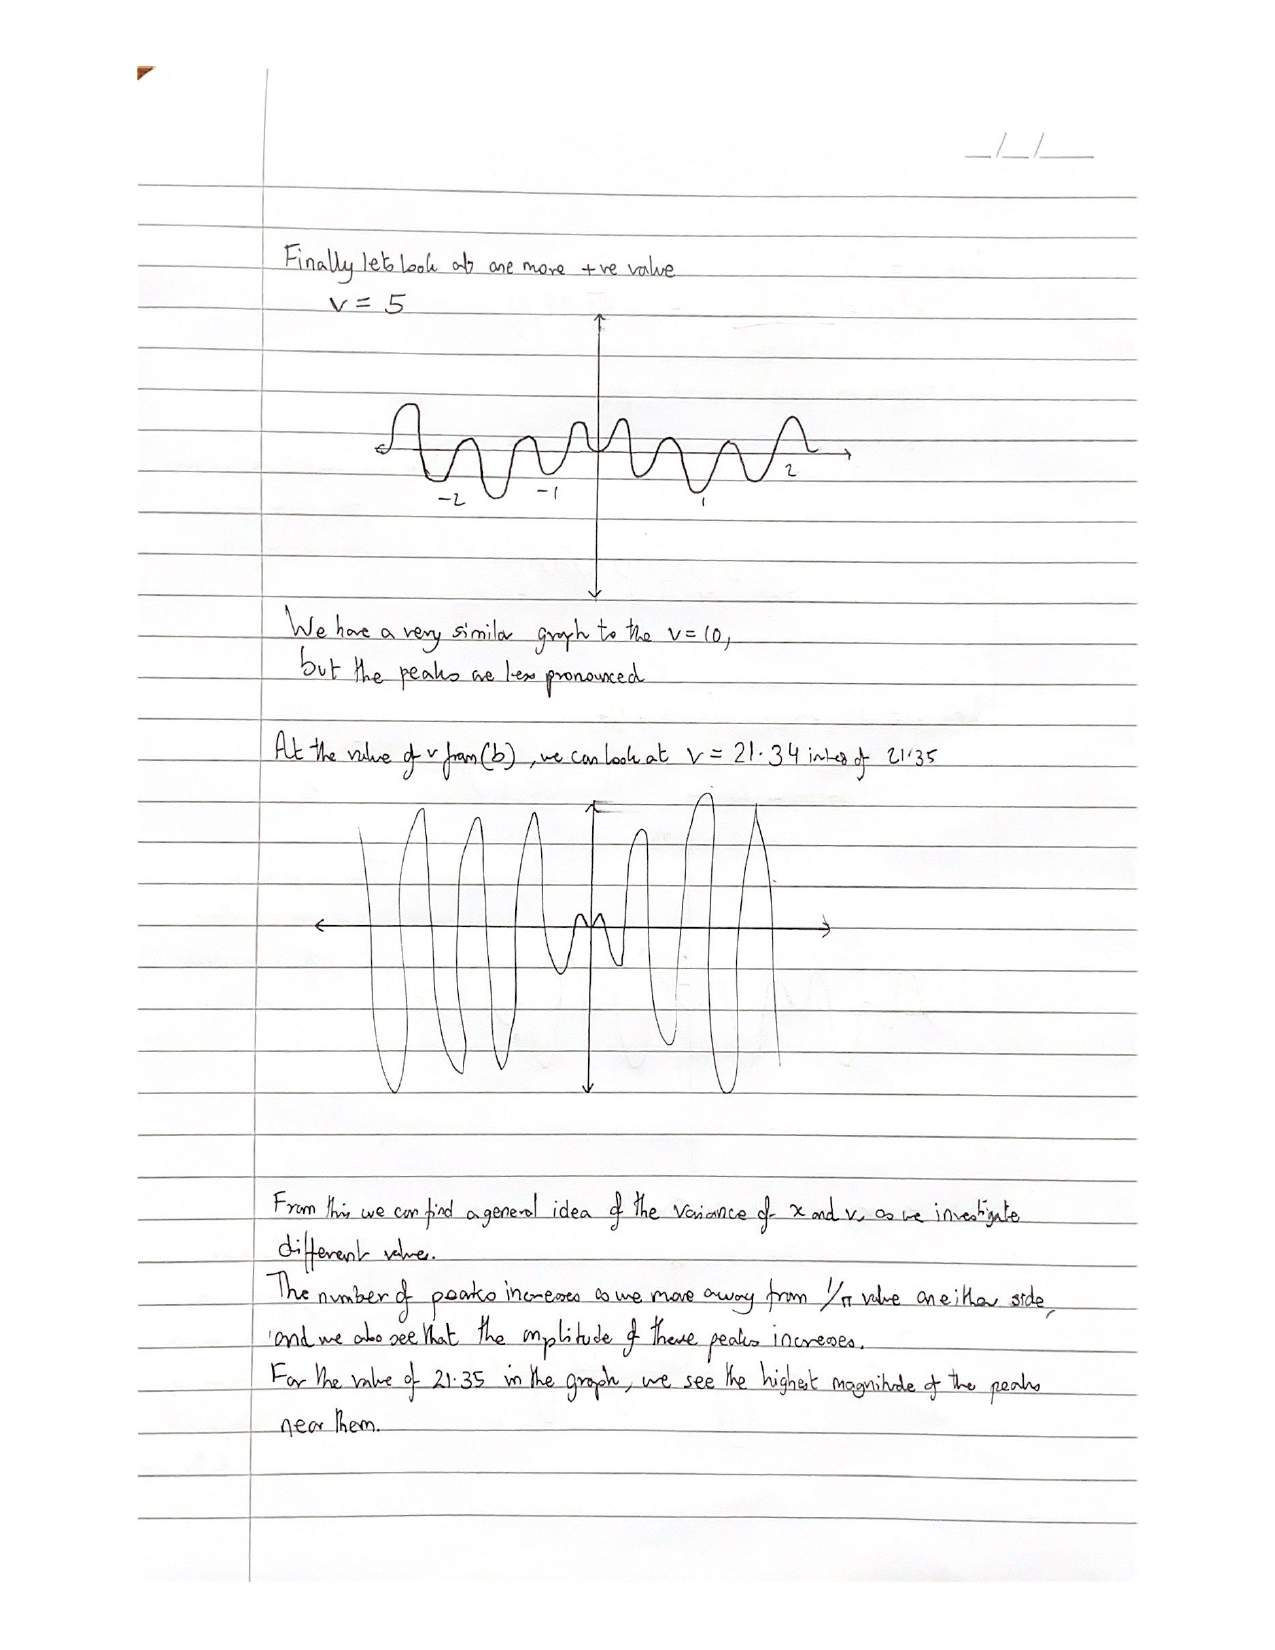 Finally lets look at one more +ve value
v = 5
-2 -1 1 2
We have a very similar graph to the v = 10,
but the peaks are less pronounced
At the value of v from (b), we can look at v = 21.34 of 21.35
From this we can find a general idea of the variance of x and v, as we investigate
different values.
The number of peaks increases as we move away from 1/π value on either side,
and we also see that the amplitude of these peaks increases.
For the value of 21.35 in the graph, we see the highest magnitude of the peaks
near them.